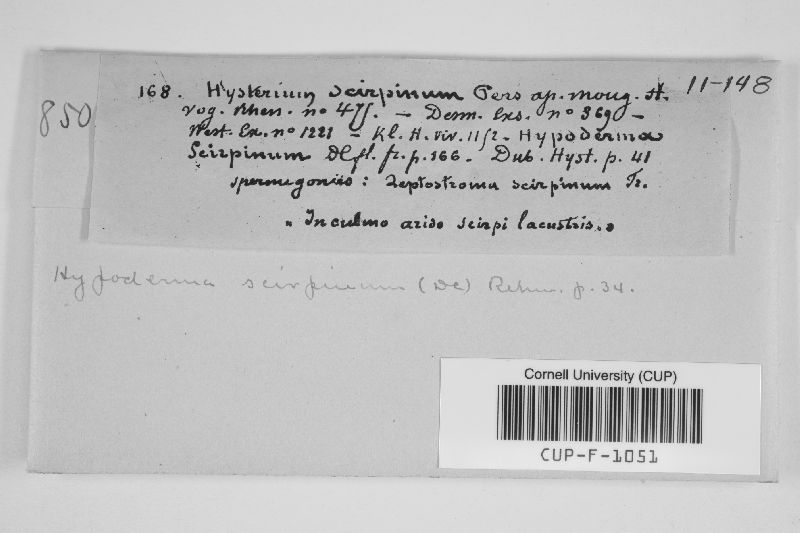 168. Hysterium scirpinum Pers ap. moug. st. 11-148
850
vog. Rhen. no 475. — Desm. Exs. no 369 —
West. Ex. no 1221 — Kl. H. viv. 1152 - Hypoderma
Scirpinum DC fl. fr. p. 166. - Dub. Hyst. p. 41
spermogoniis: Leptostroma scirpinum Fr.
" In culmo arido scirpi lacustris. "
Hypoderma scirpinum (DC) Rehm. p. 34.
Cornell University (CUP)
CUP-F-1051